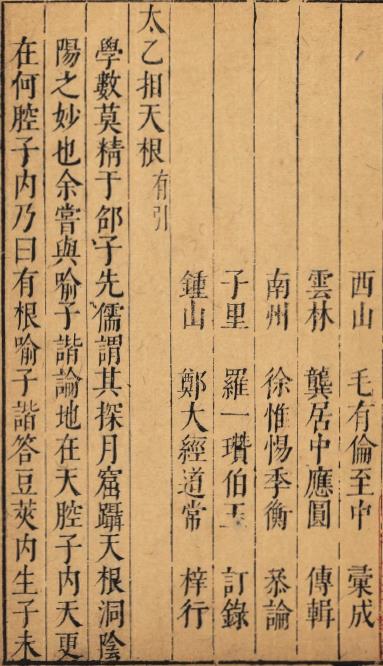 西山 毛有倫至中 彚成
雲林 龔居中應圓 傳輯
南州 徐惟惕季衡 叅論
子里 羅一瓚伯玉 訂錄
鍾山 鄭大經道常 梓行
太乙扣天根 有引
學數莫精于邵子先儒謂其探月窟躡天根洞陰
陽之妙也余嘗與喻子諧論地在天腔子內天更
在何腔子內乃曰有根喻子諧答豆莢內生子未